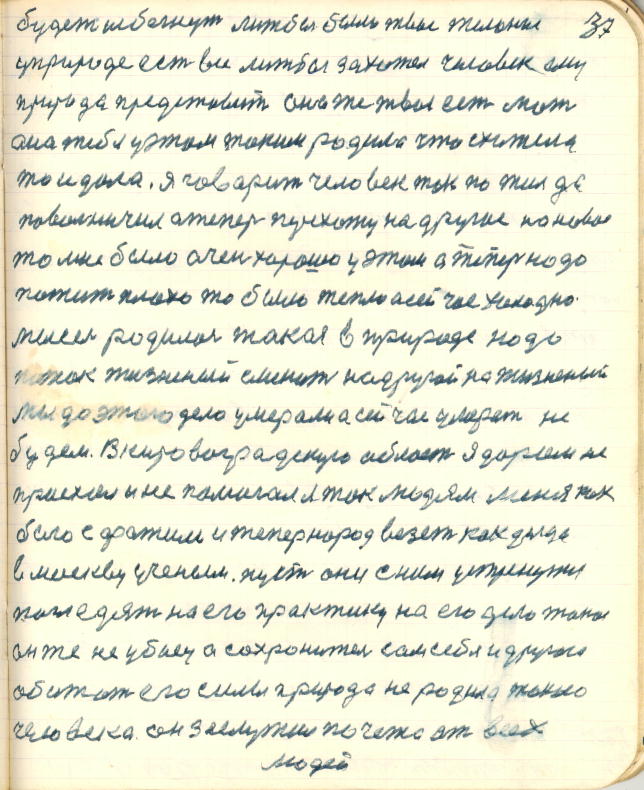 37
будет избегнут лижбы были твои жилание
уприроде ест все лижбы захотел человек ему
природа предстовит она же твоя ест мат
она тебя уэтом таким родила что схотела
то идала. Я говарит человек так пожил да
поволничил атепер пуихожу на другое на новое
то мне было очен хорошо уэтом а тепер надо
пожит плохо то было тепло асейчас холодно.
мысел родилас такая в природе надо
поток жизненый сменит на другой на жизненый
мы до этого дело умерали асейчас умерат не
будем. В кировоградскую област я даром не
приехал и не помагал я так людям меня как
было с
и тепер народ везет как дида
в москву ученым. пуст они сним устренутся
погледят на его практику на его дело такое
он же не убиец а сохронител сам себя и другого
обижат его силы природа не родила такого
человека. он заслужил почота от всех
людей